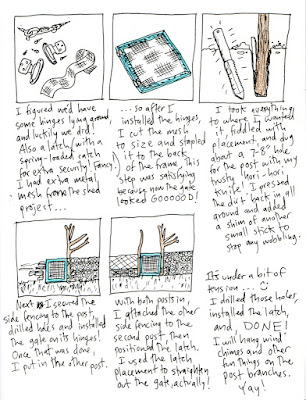 I figured we'd have
some hinges lying around,
and luckily we did!
Also a latch (with a
spring-loaded catch
for extra security, fancy!)
I had extra metal
mesh from the shed
project...
...so after I
installed the hinges,
I cut the mesh
to size and stapled
it to the back
of the frame. This
step was satisfying
because now the gate
looked GOOOOOD!
I took everything
to where I wanted
it, fiddled with
placement and dug
about a 7-8" hole
for the post with my
trusty hori-hori
knife! I pressed
the dirt back in all
around and added
a shim of another
small stick to
stop any wobbling.
Next I secured the
side fencing to the post,
drilled holes and installed
the gate on its hinges!
Once that was done,
I put in the other post.
With both posts in,
I attached the other
side fencing to the
second post, then
positioned the latch.
I used the latch
placement to straighten
out the gate, actually!
It's under a bit of
tension...
I drilled those holes,
installed the latch,
and, DONE!
I will hang wind
chimes and other
fun things on the
post branches.
Yay!